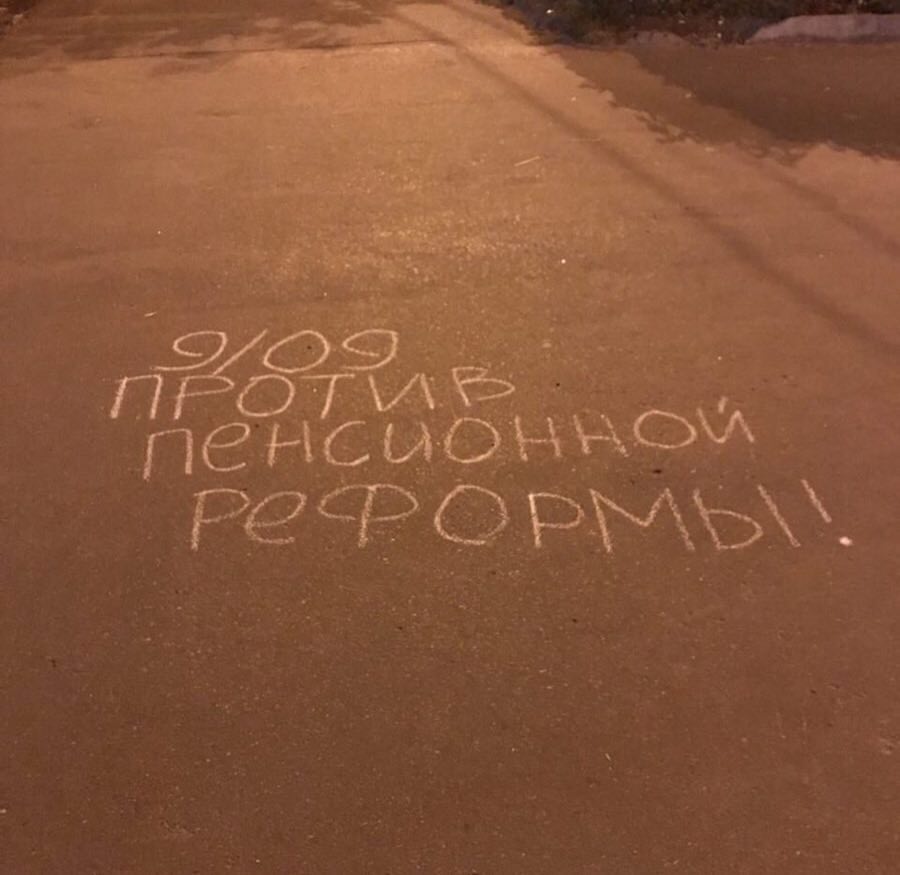 9/09
ПРОТИВ
ПЕНСИОННОЙ
РЕФОРМЫ!